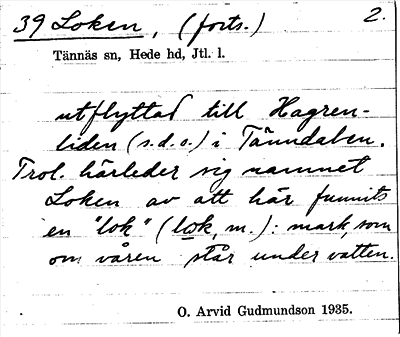 39 Loken, (forts.) 2.
Tännäs sn, Hede hd, Jtl. l.
utflyttad till Hagren-
liden (s.d.o.) i Tänndalen.
Trol. härleder sig namnet
Loken av att här funnits
en "lok" (lok, m.): mark, som
om våren står under vatten.
O. Arvid Gudmundson 1935.